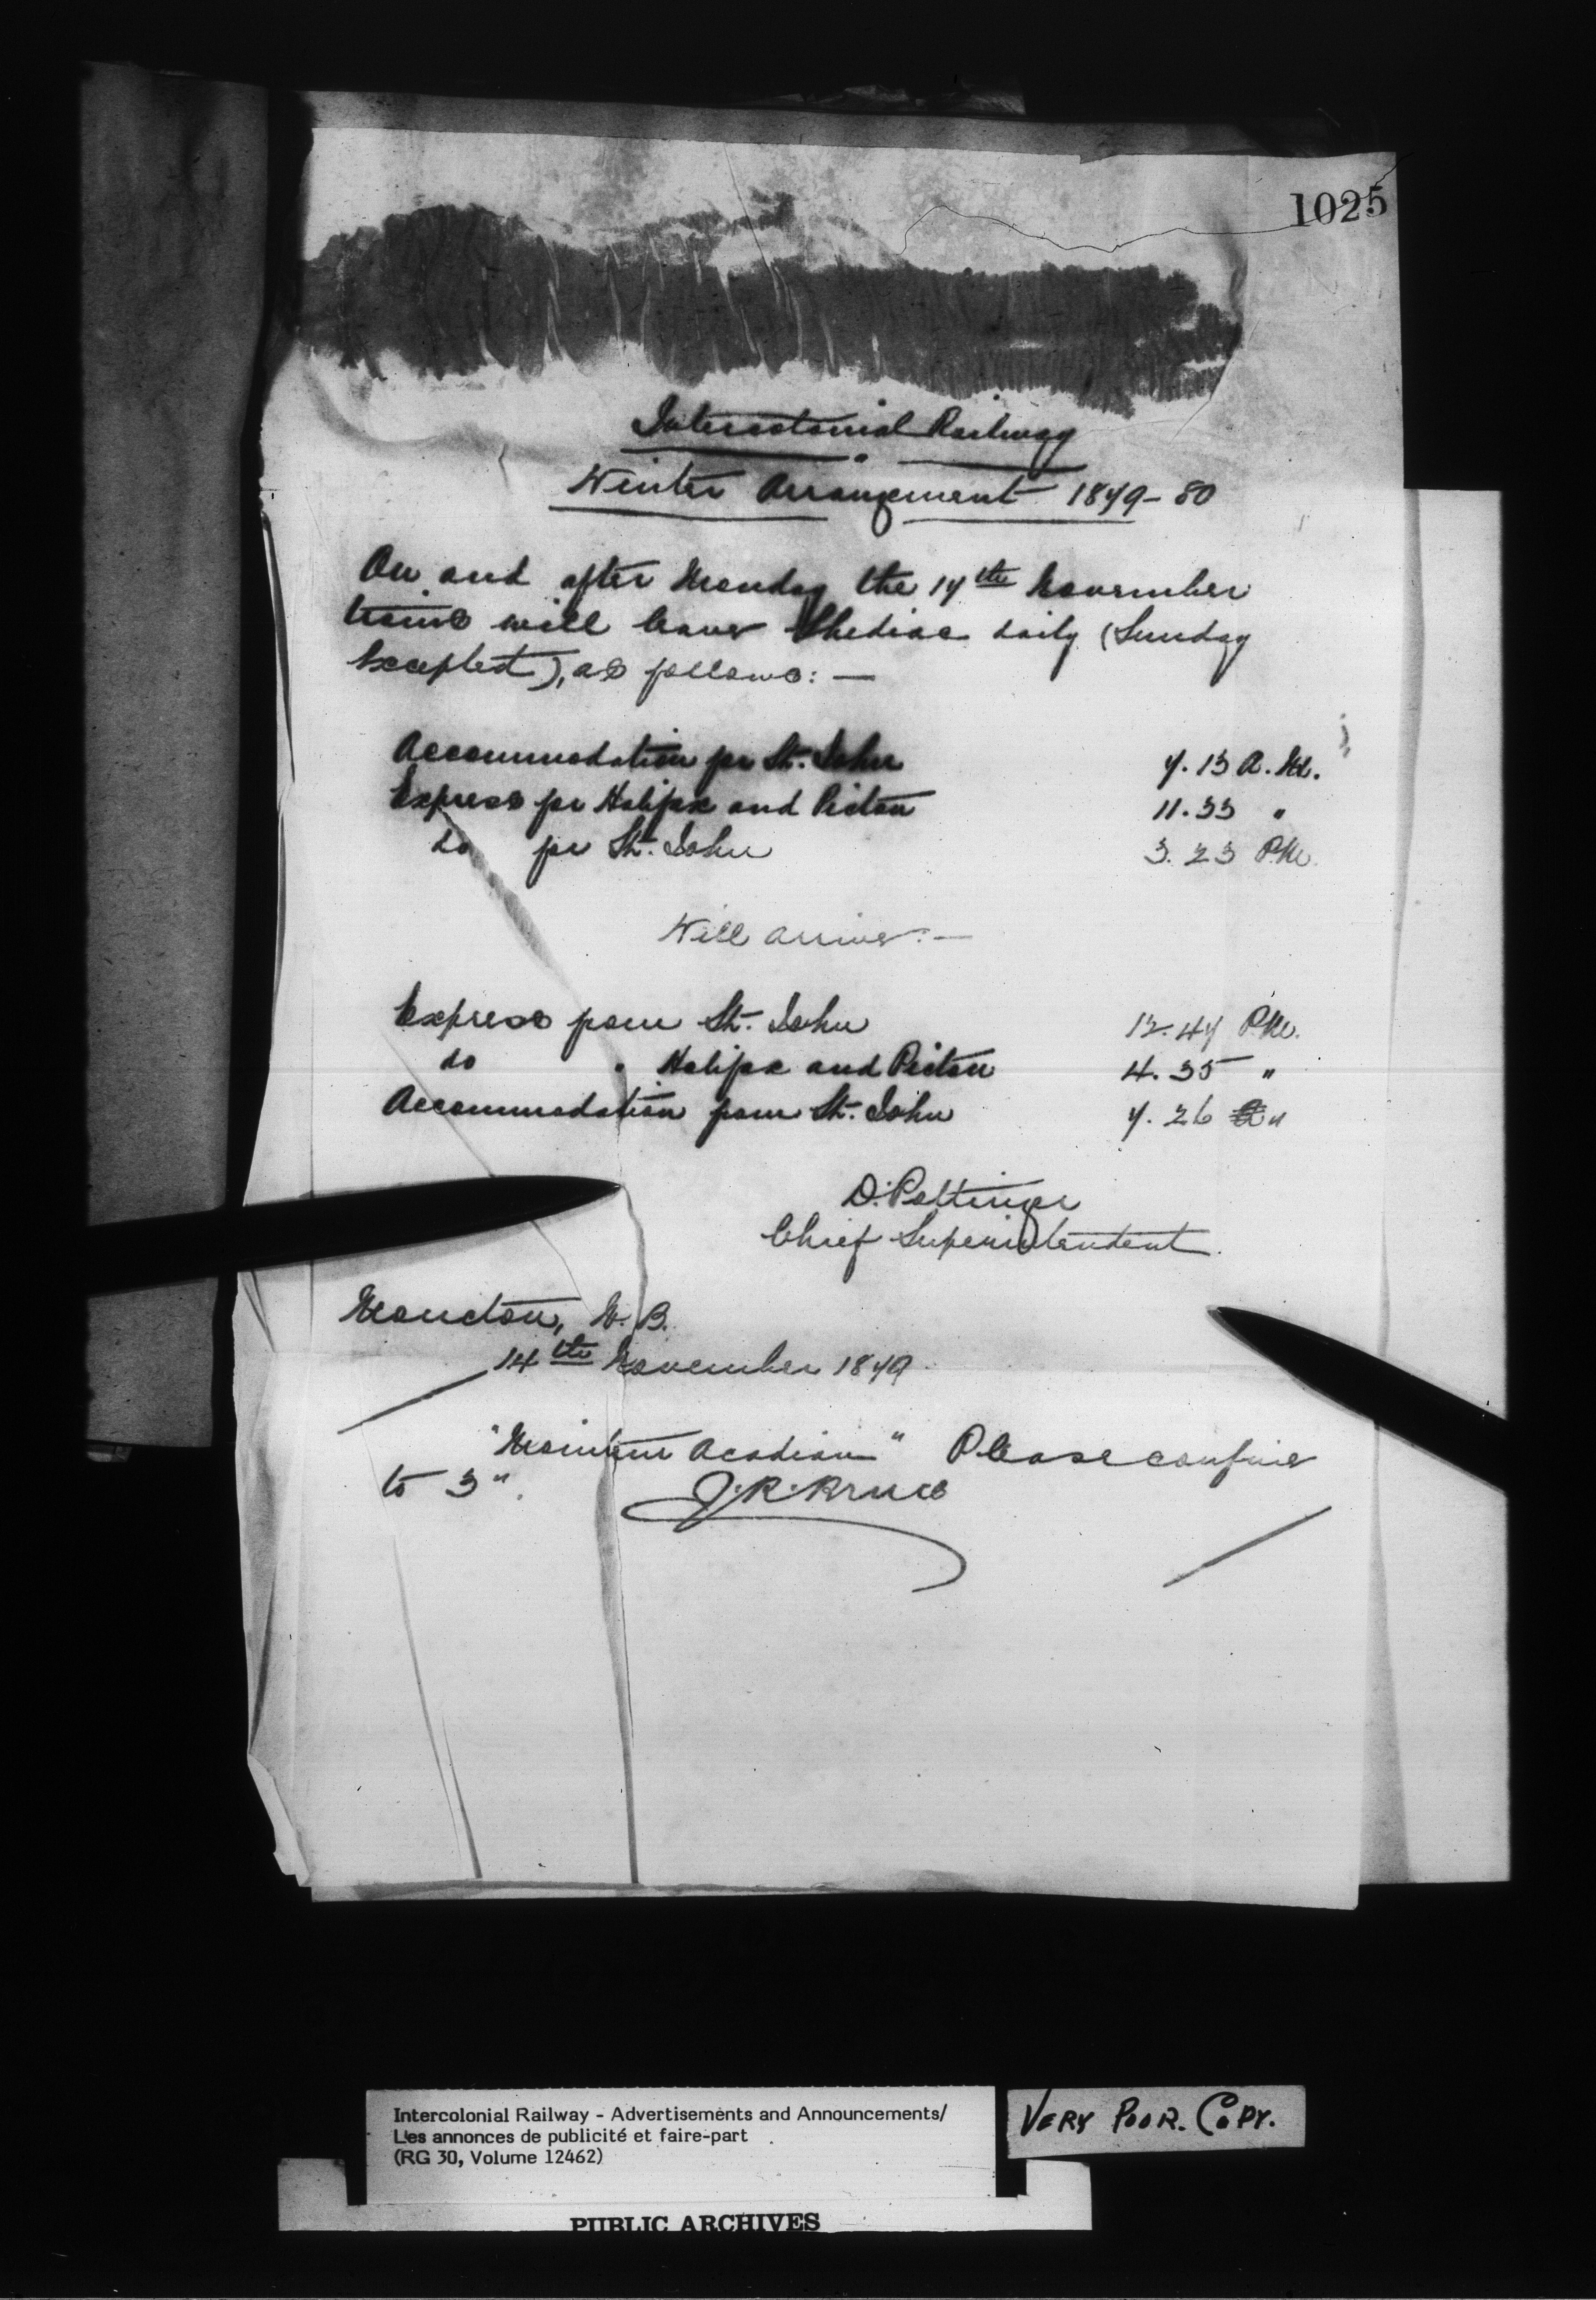 1025
Intercolonial Railway
Winter Arrangement 1879-80
On and after Monday the 17th November
trains will leave Shediac daily (Sunday
Excepted), as follows: —
Accommodation for St. John 7.13 A.M.
Express for Halifax and Pictou 11.33 "
do for St. John 3.23 P.M.
Will arrive: —
Express from St. John 12.47 P.M.
do " Halifax and Pictou 4.35 "
Accommodation from St. John 7.26 "
D. Pottinger
Chief Superintendent.
Moncton, N.B.
14th November 1879
"Moniteur Acadien" Please confine
to 3".
J.R. Bruce
Intercolonial Railway - Advertisements and Announcements/
Les annonces de publicité et faire-part
(RG 30, Volume 12462)
VERY POOR. COPY.
PUBLIC ARCHIVES